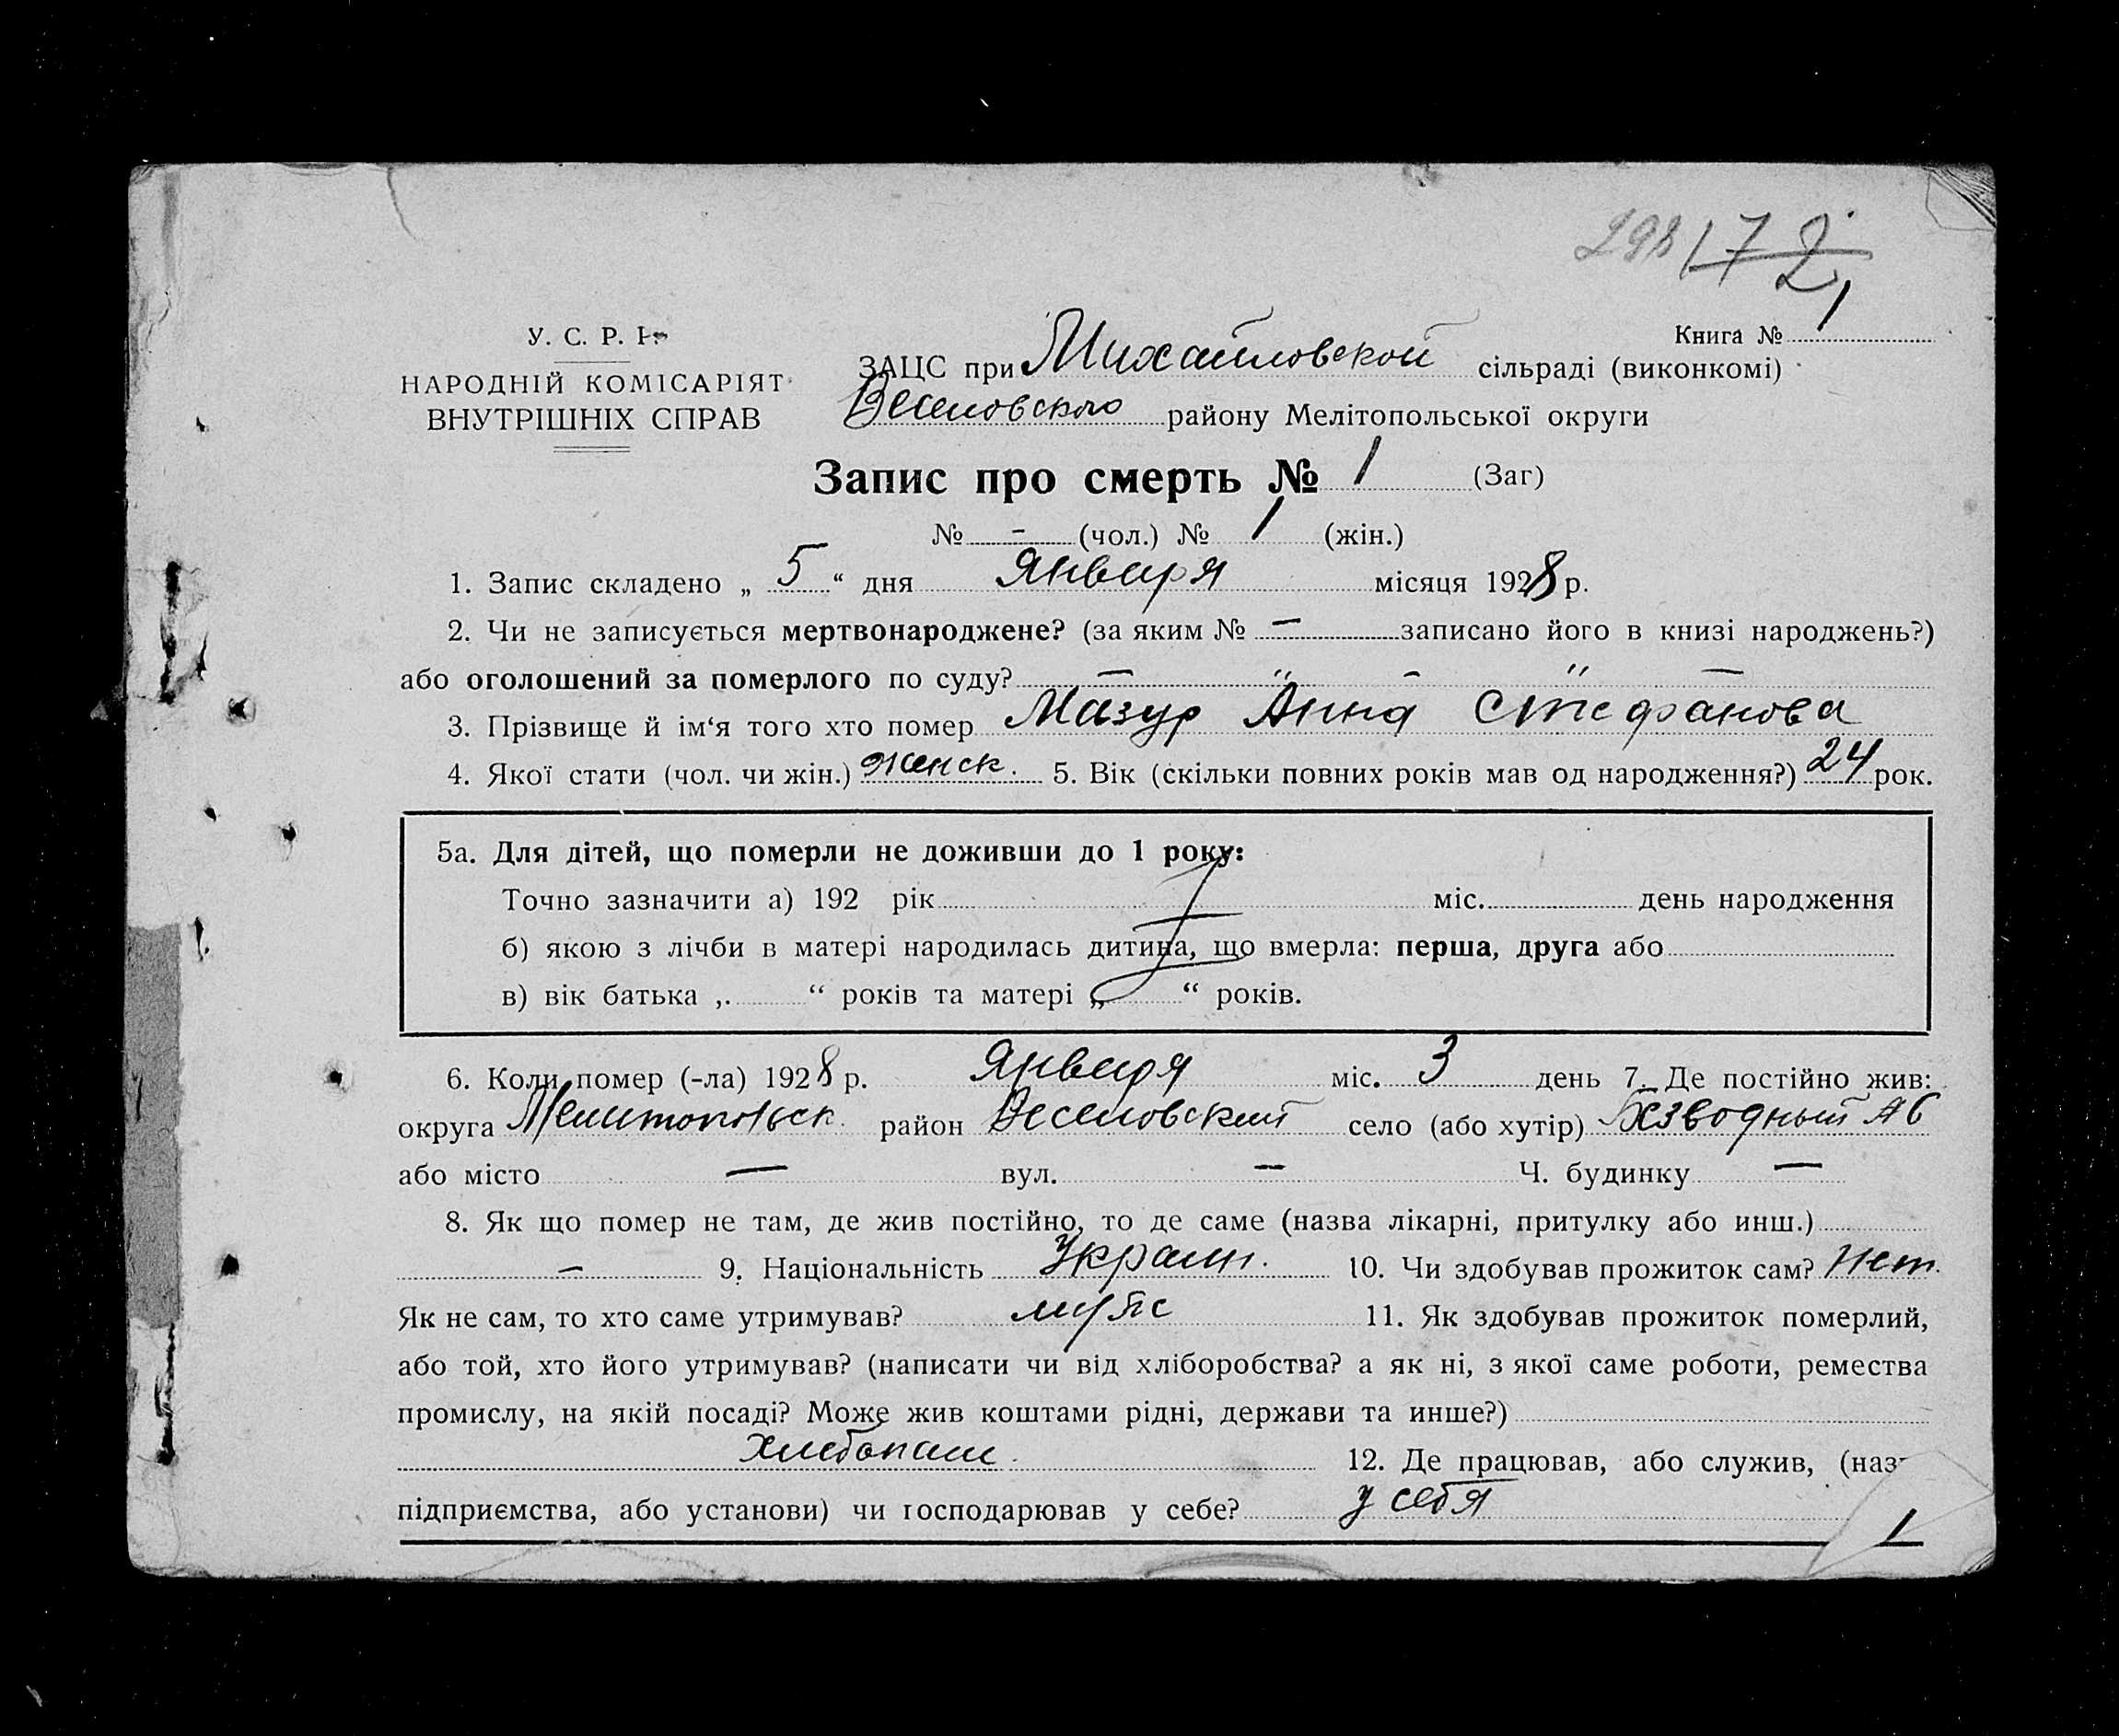 298 172
У. С. Р. Р.
НАРОДНІЙ КОМІСАРІЯТ
ВНУТРІШНІХ СПРАВ
Книга № 1
ЗАЦС при Михайловской сільраді (виконкомі)
Веселовского району Мелітопольської округи
Запис про смерть № 1 (Заг)
№ - (чол.) № 1 (жін.)
1. Запис складено „ 5 “ дня Января місяця 1928 р.
2. Чи не записується мертвонароджене? (за яким № — записано його в книзі народжень?)
або оголошений за померлого по суду? — " — " —
3. Прізвище й ім‘я того хто помер Мазур Анна Стефанова
4. Якої стати (чол. чи жін.) женск. 5. Вік (скільки повних років мав од народження?) 24 рок.
5а. Для дітей, що померли не доживши до 1 року:
Точно зазначити а) 192 рік міс. день народження
б) якою з лічби в матері народилась дитина, що вмерла: перша, друга або
в) вік батька ,. “ років та матері „ “ років.
6. Коли помер (-ла) 1928 р. Января міс. 3 день 7. Де постійно жив:
округа Мелитопольск. район Веселовский село (або хутір) Безводный
або місто — вул. — Ч. будинку —
8. Як що помер не там, де жив постійно, то де саме (назва лікарні, притулку або инш.)
— 9. Національність Украин. 10. Чи здобував прожиток сам? Нет.
Як не сам, то хто саме утримував? 11. Як здобував прожиток померлий,
або той, хто його утримував? (написати чи від хліборобства? а як ні, з якої саме роботи, ремества
промислу, на якій посаді? Може жив коштами рідні, держави та инше?)
Хлебопаш. 12. Де працював, або служив, (наз
підприємства, або установи) чи господарював у себе? у себя
1